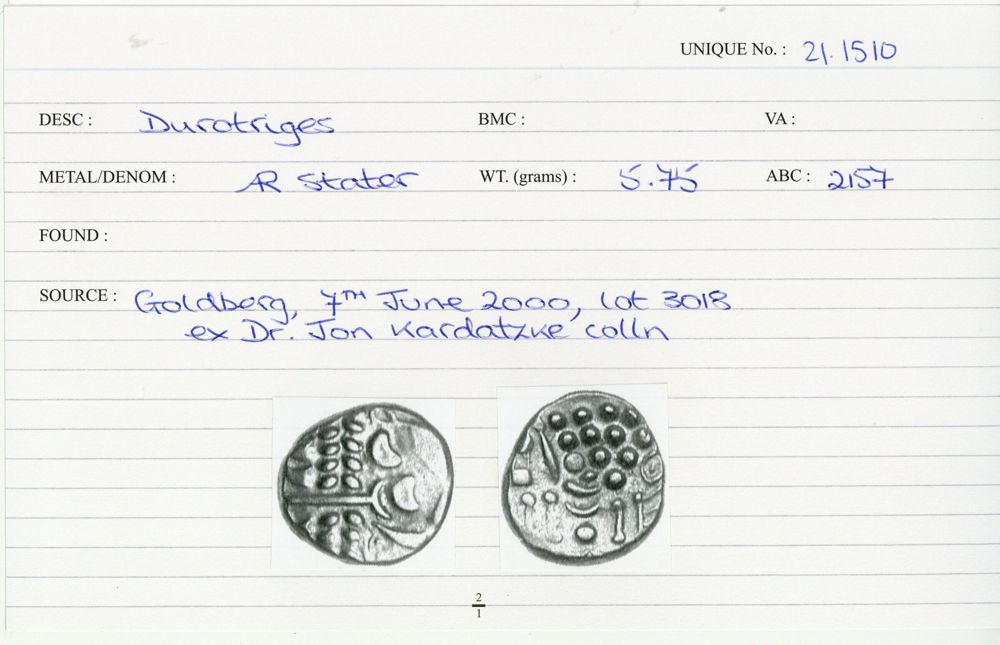 UNIQUE No. : 21.1510
DESC : Durotriges BMC : VA :
METAL/DENOM : AR Stater WT. (grams) : 5.75 ABC : 2157
FOUND :
SOURCE : Goldberg, 7TH June 2000, lot 3018
ex Dr. Jon Kardatzke colln
2
1